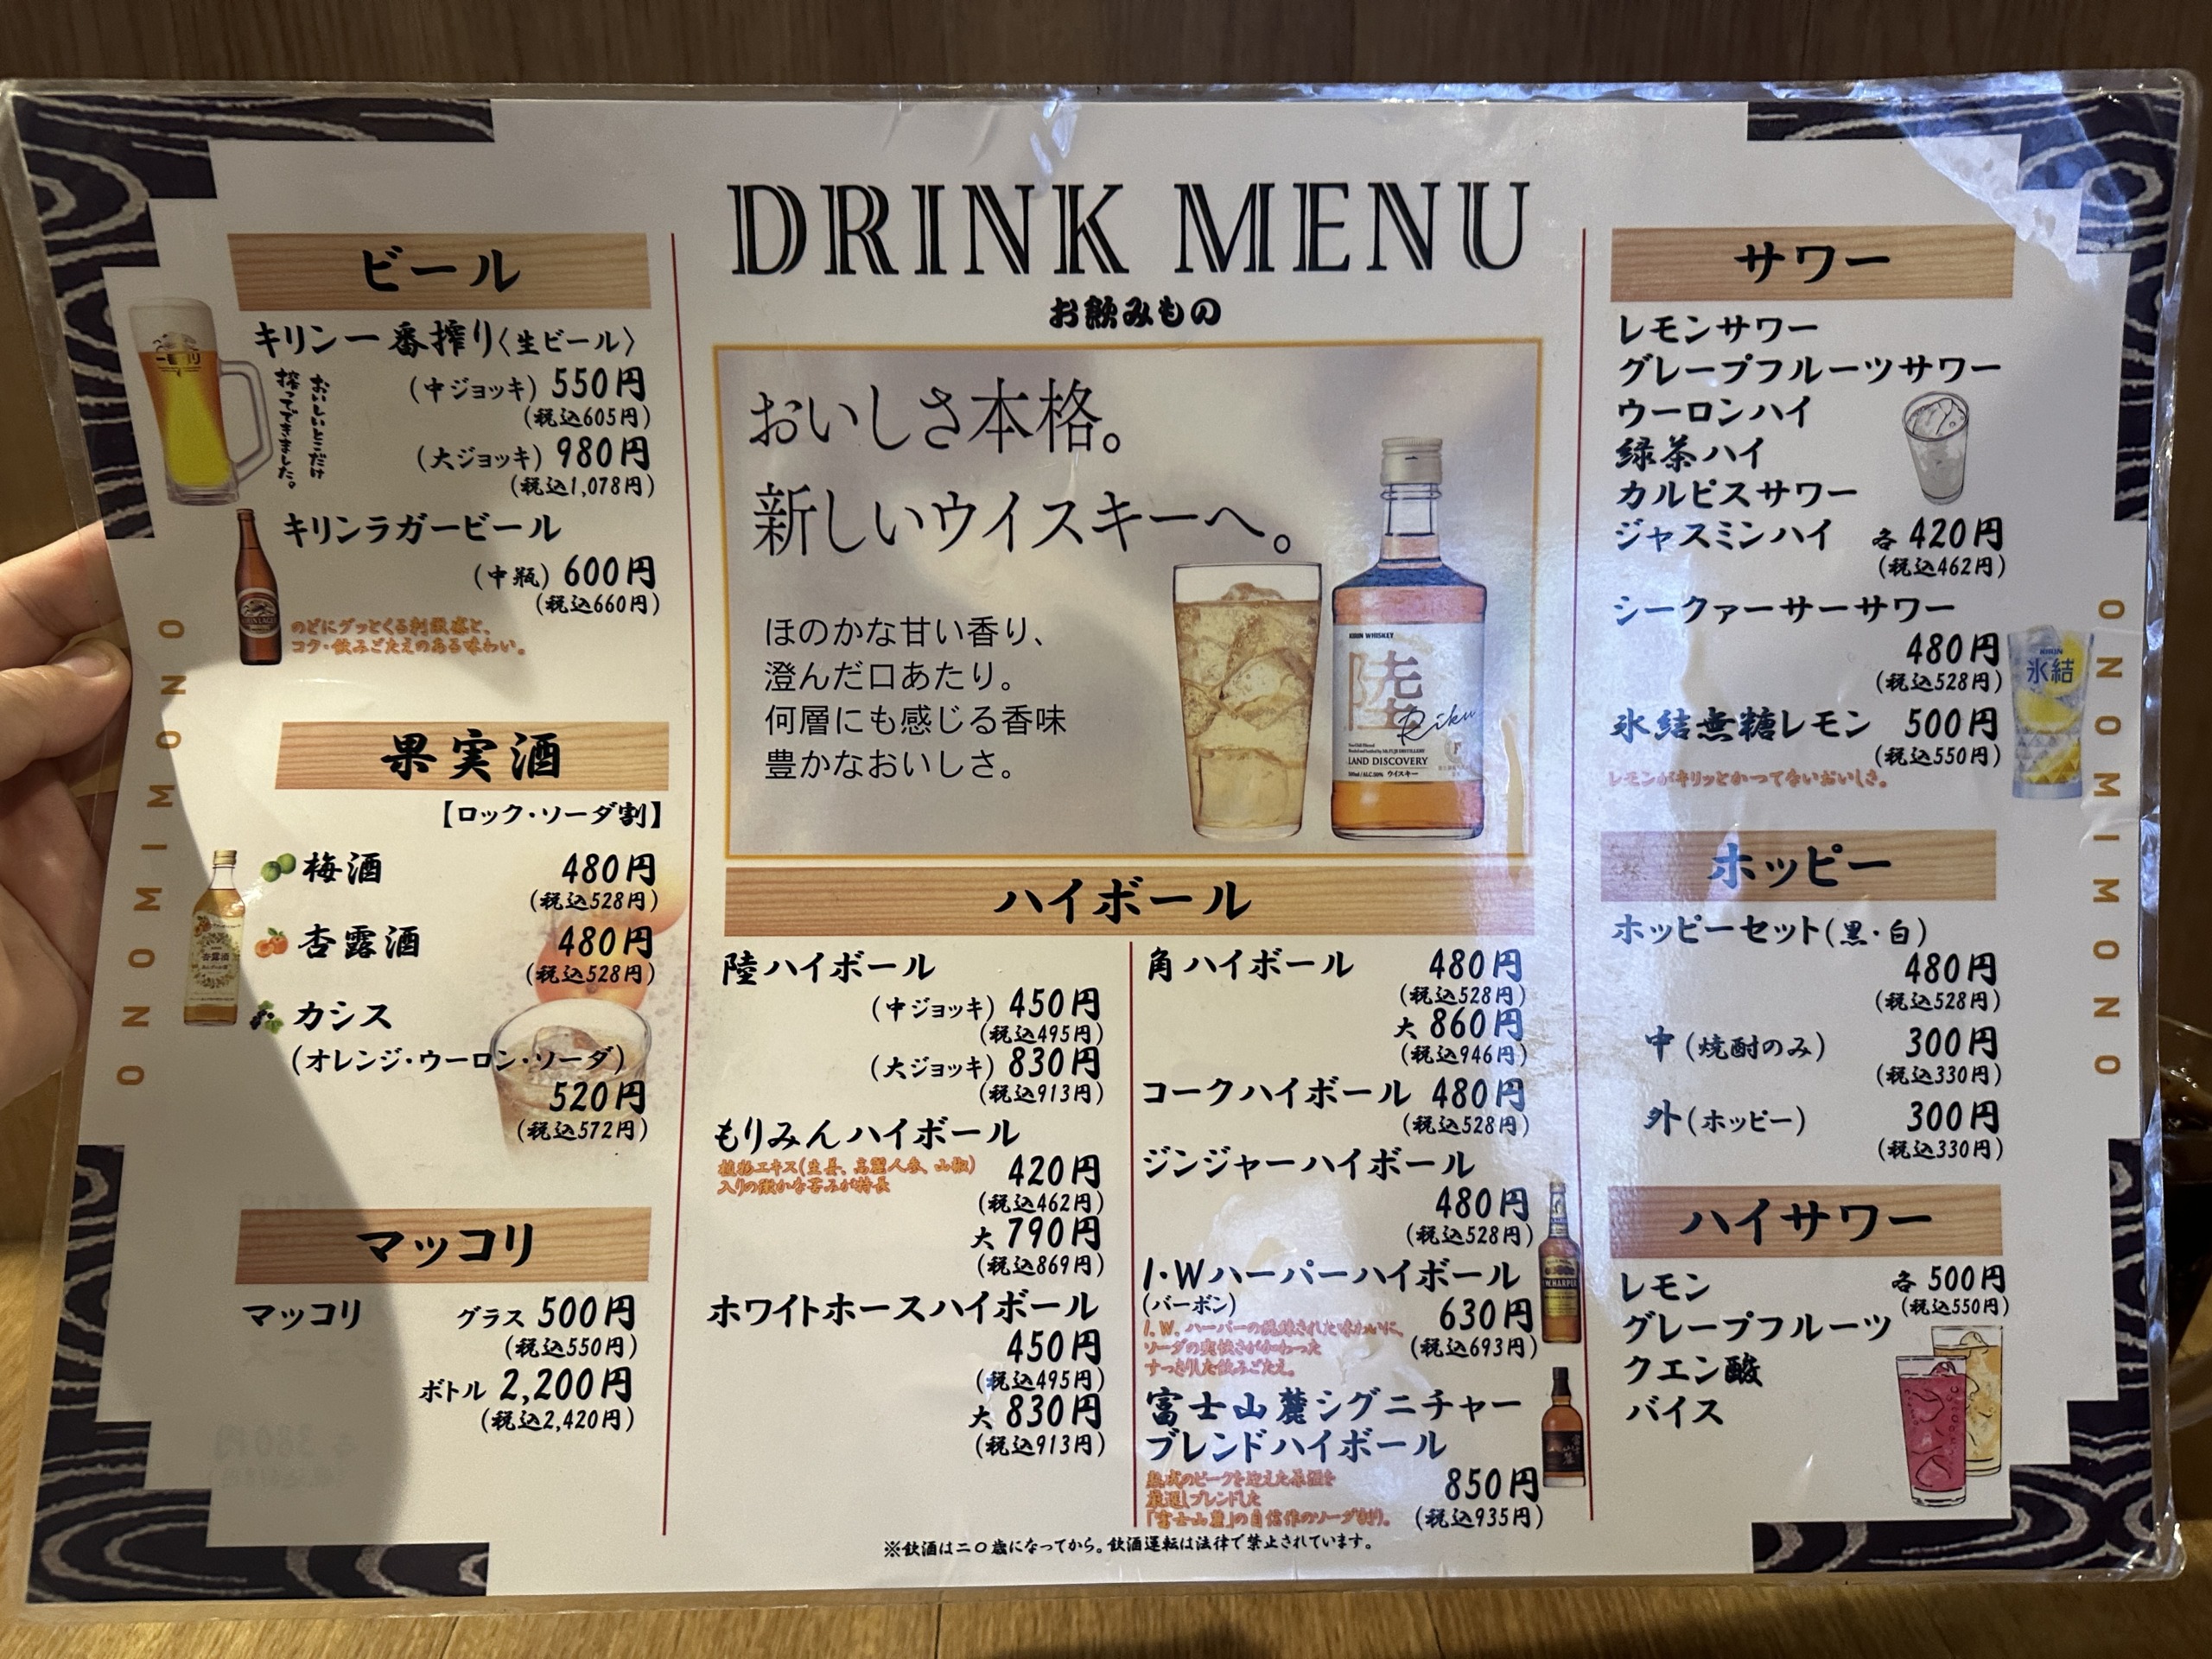 DRINK MENU
お飲みもの
ビール
キリン一番搾り〈生ビール〉
一番搾り
おいしいとこだけ
搾ってできました。
(中ジョッキ) 550円
(税込605円)
(大ジョッキ) 980円
(税込1,078円)
キリンラガービール
(中瓶) 600円
(税込660円)
のどにグッとくる刺激感と、
コク・飲みごたえのある味わい。
果実酒
【ロック・ソーダ割】
梅酒 480円
(税込528円)
杏露酒 480円
(税込528円)
杏露酒
カシス
(オレンジ・ウーロン・ソーダ)
520円
(税込572円)
マッコリ
マッコリ グラス 500円
(税込550円)
ボトル 2,200円
(税込2,420円)
おいしさ本格。
新しいウイスキーへ。
ほのかな甘い香り、
澄んだ口あたり。
何層にも感じる香味
豊かなおいしさ。
KIRIN WHISKEY
陸
Riku
LAND DISCOVERY
ウイスキー
ハイボール
陸ハイボール
(中ジョッキ) 450円
(税込495円)
(大ジョッキ) 830円
(税込913円)
もりみんハイボール
植物エキス(生姜、高麗人参、山椒)
入りの微かな苦みが特長
420円
(税込462円)
大 790円
(税込869円)
ホワイトホースハイボール
450円
(税込495円)
大 830円
(税込913円)
角ハイボール 480円
(税込528円)
大 860円
(税込946円)
コークハイボール 480円
(税込528円)
ジンジャーハイボール
480円
(税込528円)
I・Wハーパーハイボール
(バーボン) 630円
(税込693円)
I.W.ハーパーの洗練された味わいに、
ソーダの爽快さが加わった
すっきりした飲みごたえ。
I.W.HARPER
富士山麓シグニチャー
ブレンドハイボール
熟成のピークを迎えた原酒を
厳選しブレンドした
「富士山麓」の自信作のソーダ割り。
850円
(税込935円)
※飲酒は二〇歳になってから。飲酒運転は法律で禁止されています。
サワー
レモンサワー
グレープフルーツサワー
ウーロンハイ
緑茶ハイ
カルピスサワー
ジャスミンハイ 各 420円
(税込462円)
シークァーサーサワー
480円
(税込528円)
氷結無糖レモン 500円
(税込550円)
レモンがキリッとかつてないおいしさ。
KIRIN
氷結
ホッピー
ホッピーセット(黒・白)
480円
(税込528円)
中(焼酎のみ) 300円
(税込330円)
外(ホッピー) 300円
(税込330円)
ハイサワー
レモン 各 500円
(税込550円)
グレープフルーツ
クエン酸
バイス
ONOMIMONO
ONOMIMONO